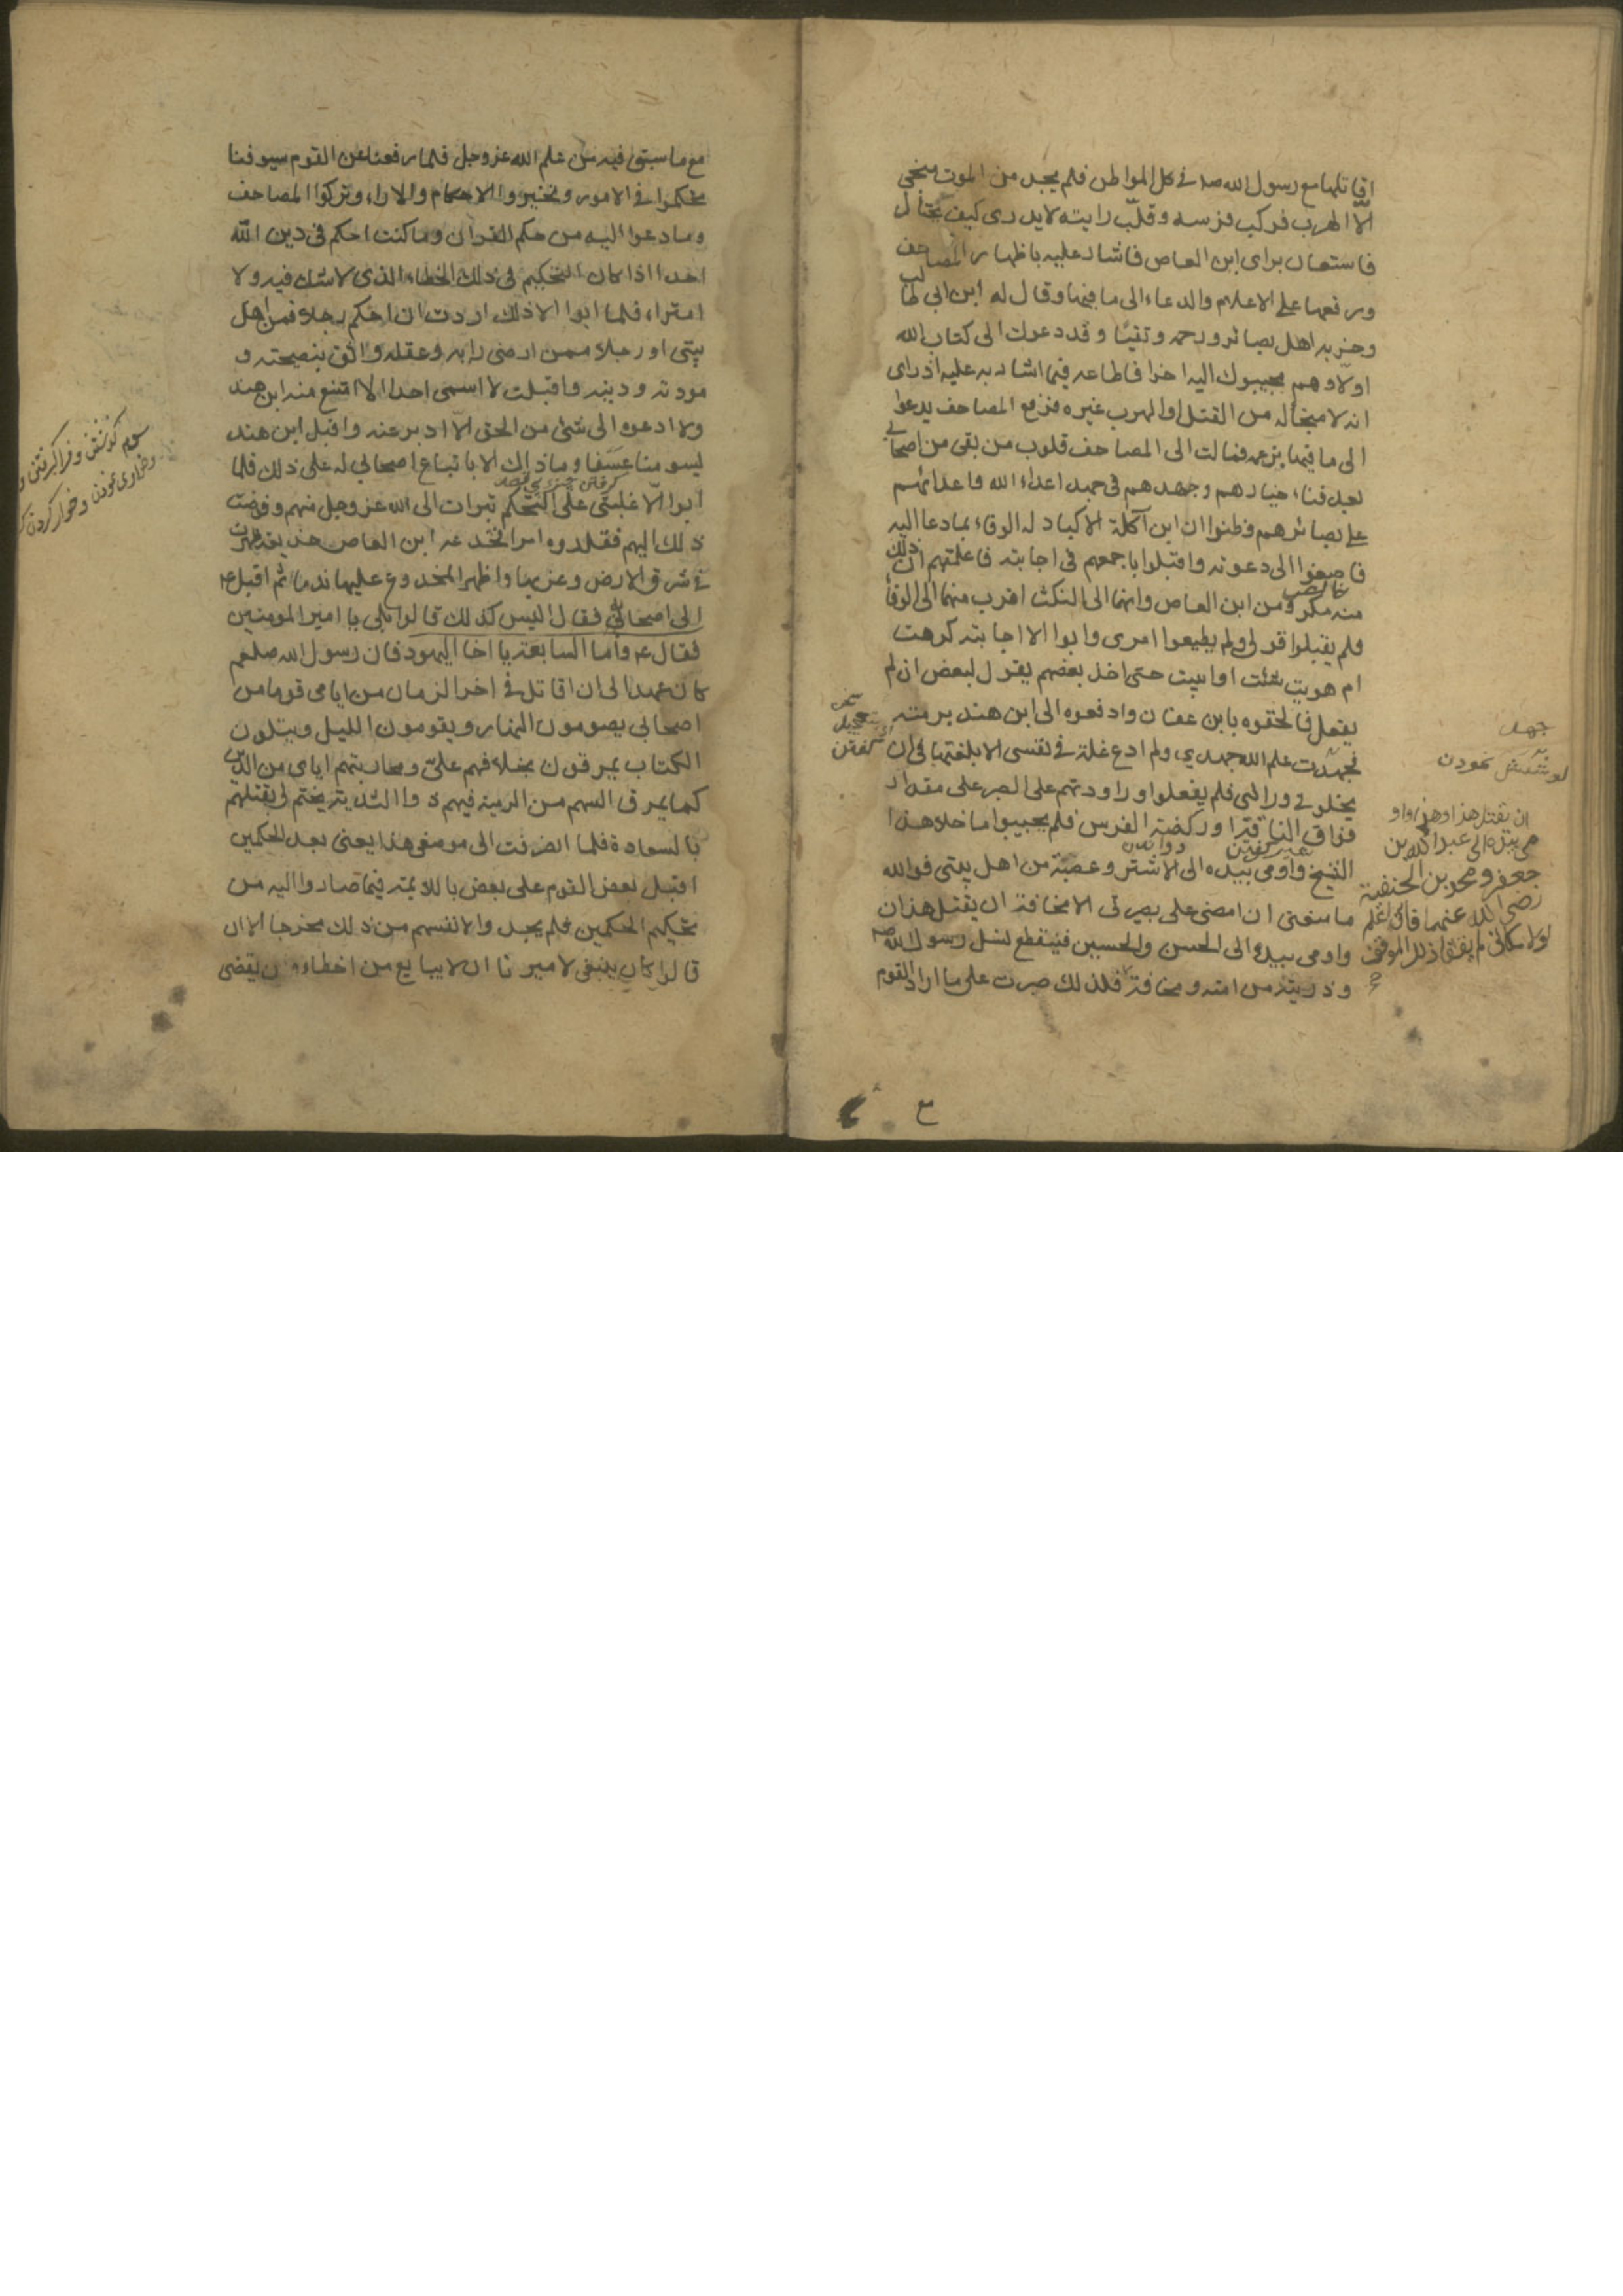 اقاتلها مع رسول الله صلم فى كل المواطن فلم يجد من الموت منجى
الّا الهرب فركب فرسه وقلّب رايته لا يدرى كيف يحتال
فاستعان براى ابن العاص فاشار عليه باظهار المصاحف
ورفعها على الاعلام والدعاء الى ما فيها وقال له ابن ابى طالب
وحزبه اهل بصائر ورحمه وتقيا وقد دعوك الى كتاب الله
اولا وهم مجيبوك اليه اخرا فاطاعه فيما اشار به عليه اذ راى
انه لا منجاله من القتل او الهرب غيره فرفع المصاحف يدعوا
الى ما فيها بزعمه فمالت الى المصاحف قلوب من بقى من اصحابى
بعد فناء خيارهم وجهدهم فى جهد اعداء الله واعدائهم
على بصائرهم فظنوا ان ابن آكلة الاكباد له الوفاء بما دعا اليه
فاصغوا الى دعوته واقبلوا باجمعهم فى اجابته فاعلمتهم ان ذلك
منه مكر ومن ابن العاص وانهما الى النكث اقرب منهما الى الوفا
فلم يقبلوا قولى ولم يطيعوا امرى وابوا الا اجابته كرهت
ام هويت شئت او ابيت حتى اخذ بعضهم يقول لبعض ان لم
يفعل فالحقوه بابن عفان وادفعوه الى ابن هند برمته
فجهدت علم الله جهدي ولم ادع غلة فى نفسى الا بلغتها فى ان
يخلونى ورائى فلم يفعلوا وراودتهم على الصبر على مقدار
فواق الناقة او ركضة الفرس فلم يجيبوا ما خلا هذا
الشيخ واومى بيده الى الاشتر وعصبة من اهل بيتى فوالله
ما منعنى ان امضى على بصيرتى الا مخافة ان يقتل هذان
واومى بيده الى الحسن والحسين فينقطع نسل رسول الله صلم
وذريته من امته ومخافة
ان يقتل هذا وهذا واو
مى بيده الى عبد الله بن
جعفر ومحمد بن الحنفية
رضى الله عنهما فانى اعلم
لولا مكانى لم يقفا ذلك الموقف
فلذلك صبرت على ما اراد القوم
جهد
كوشش نمودن
گفتن
٣
مع ما سبق فيه من علم الله عز وجل فلما رفعنا عن القوم سيوفنا
تحكموا فى الامور وتخيروا الاحكام والاراء وتركوا المصاحف
وما دعوا اليه من حكم القرآن وما كنت احكم فى دين الله
احدا اذا كان التحكيم فى ذلك الخطاء الذى لا شك فيه ولا
امتراء فلما ابوا الا ذلك اردت ان احكم رجلا من اهل
بيتى او رجلا ممن ارضى رايه وعقله واثق بنصيحته و
مودته ودينه واقبلت لا اسمى احدا الا امتنع منه ابن هند
ولا ادعوه الى شئ من الحق الّا ادبر عنه واقبل ابن هند
يسومنا عسفا وما ذاك الا باتباع اصحابى له على ذلك فلما
ابوا الّا غلبتى على التحكم تبرات الى الله عز وجل منهم وفوضت
ذلك اليهم فقلدوه امرا فخدعه ابن العاص خديعة ظهرت
فى شرق الارض وغربها واظهر المخدوع عليها ندما ثم اقبل ع
الى اصحابه فقال اليس كذلك قالوا بلى يا امير المومنين
فقال ع واما السابعة يا اخا اليهود فان رسول الله صلعم
كان عهد الى ان اقاتل فى اخر الزمان من ايامى قوما من
اصحابى يصومون النهار ويقومون الليل ويتلون
الكتاب يمرقون بخلافهم علىّ ومحاربتهم اياى من الدين
كما يمرق السهم من الرمية فيهم ذو الثدية يختم لى بقتلهم
بالسعادة فلما انصرفت الى موضعى هذا يعنى بعد الحكمين
اقبل بعض القوم على بعض باللائمة فيما صاروا اليه من
تحكيم الحكمين فلم يجدوا لانفسهم من ذلك مخرجا الا ان
قالوا كان ينبغى لاميرنا ان لا يبايع من اخطاء وان يقضى